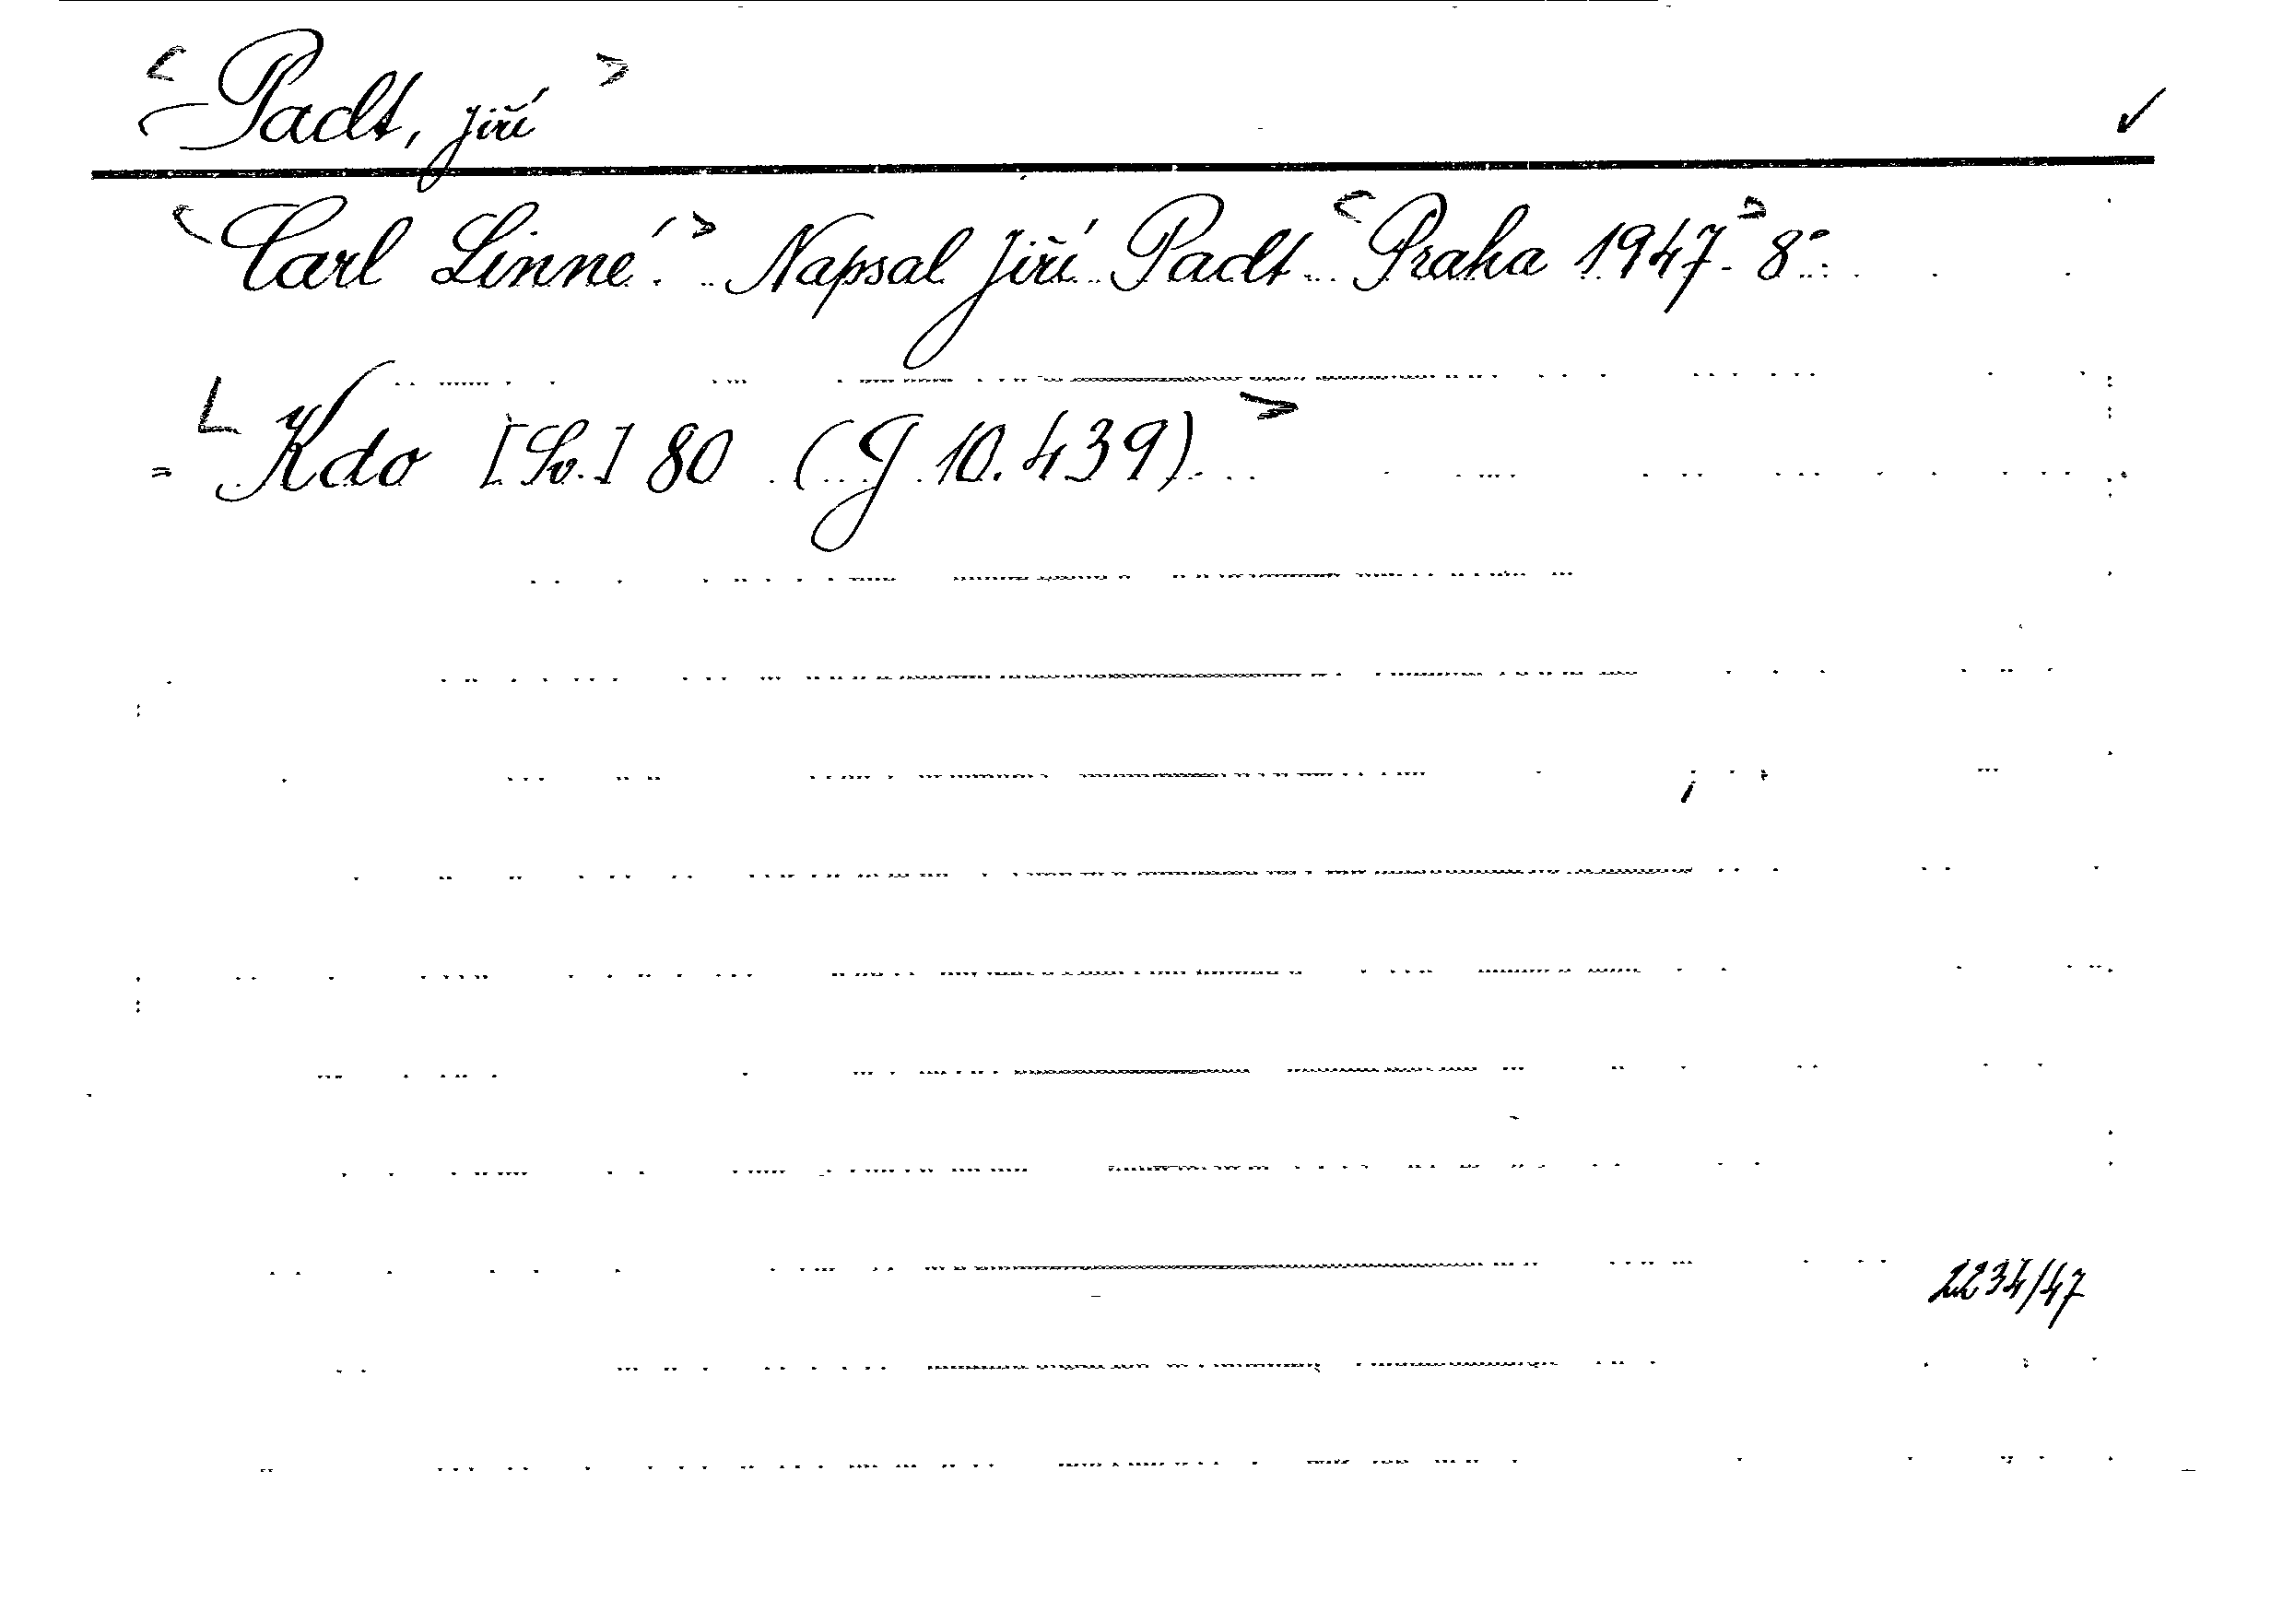 < Padt, Jiří > ✓
< Carl Linné. > Napsal Jiří Padt. < Praha 1947. > 8°.
= < Kdo [Sv.] 80 (J 10.439). >
2234/47